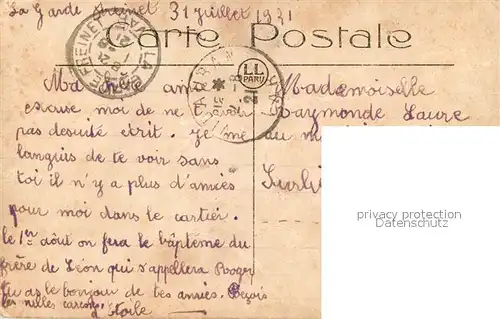 La Garde Freinet 31 Juillet 1921
Carte Postale
LA GARDE FREINET
LL
PARIS
VAR
Ma amie
excuse moi de ne t'avoir
pas desuite ecrit. Je me
languis de te voir sans
toi il n'y a plus d'amies
pour moi dans le cartier.
le 1er aôut on fera le bâptème du
frère de Léon qui s'appellera Roger
tu as le bonjour de tes amies. Reçois
les milles caresses
d'étoile
Mademoiselle
Raymonde Laure
au
privacy protection
Datenschutz